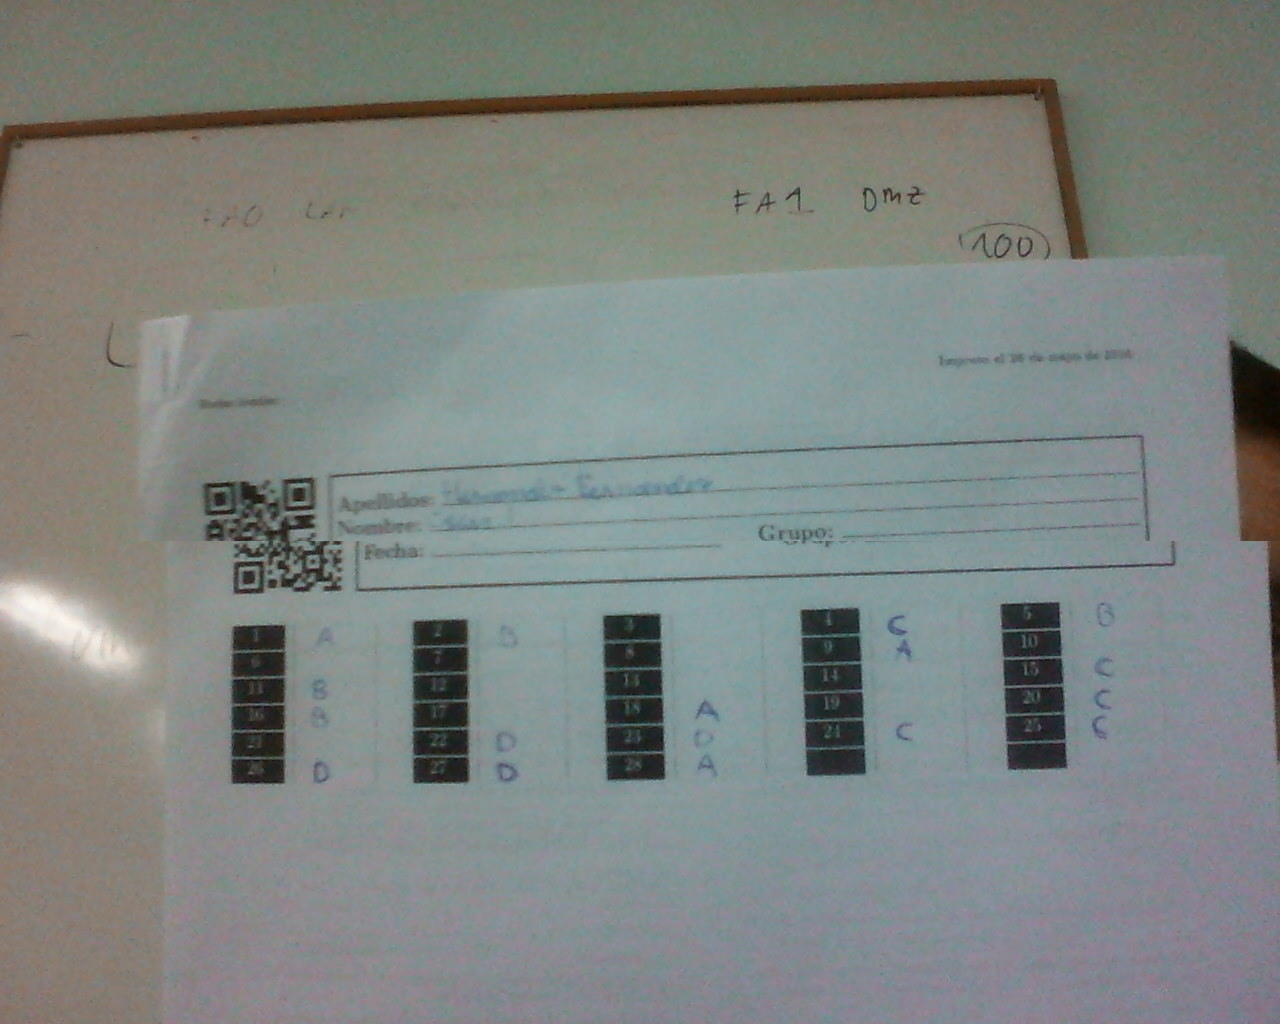 FA1 DMZ
100
Impreso el 26 de mayo de
Apellidos: Fernandez
Nombre:
Grupo:
Fecha:
1 A 2 B 3 4 C 5 B
6 7 8 9 A 10
11 B 12 13 14 15 C
16 B 17 18 A 19 20 C
21 22 D 23 D 24 C 25 C
26 D 27 D 28 A